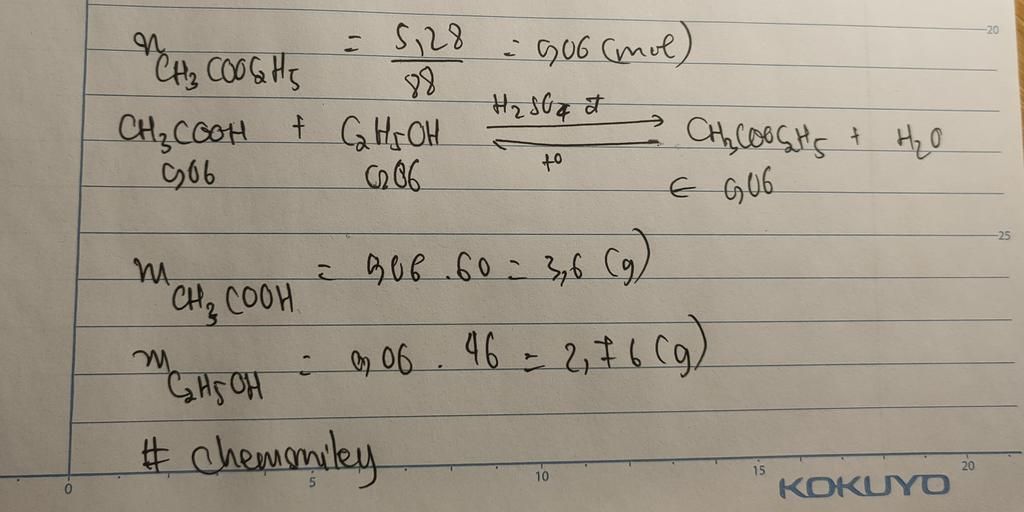 20
n CH3COOC2H5 = 5,28 / 88 = 0,06 (mol)
CH3COOH + C2H5OH ⇌ H2SO4 đ t° CH3COOC2H5 + H2O
0,06 0,06 ← 0,06
25
m CH3COOH = 0,06 . 60 = 3,6 (g)
m C2H5OH = 0,06 . 46 = 2,76 (g)
# chemsmiley
0 5 10 15 20
KOKUYO